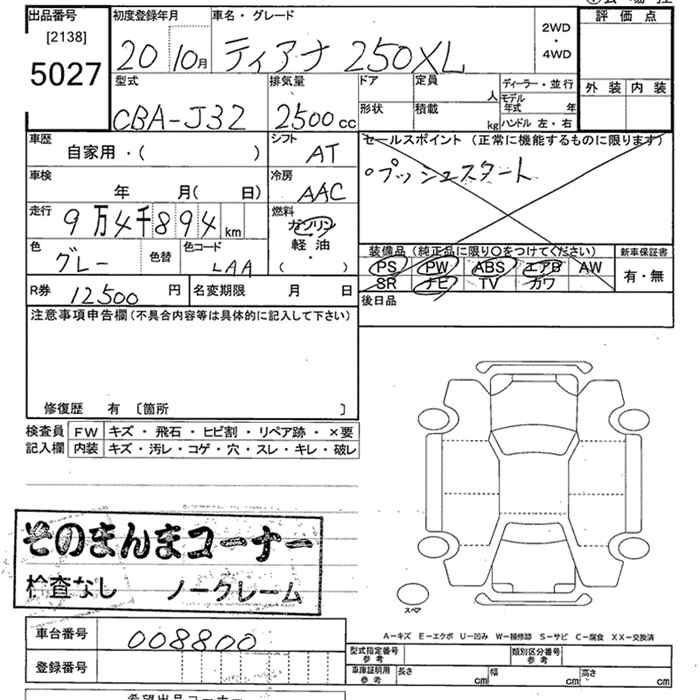 出品番号
[2138]
5027
初度登録年月
20 10月
車名・グレード
ティアナ 250XL
2WD
・
4WD
評価点
外装 内装
型式
CBA-J32
排気量
2500cc
ドア
形状
定員
人
積載
kg
ディーラー・並行
モデル
年式 年
ハンドル 左・右
車歴
自家用・( )
シフト
AT
セールスポイント (正常に機能するものに限ります)
。プッシュスタート
車検
年 月( 日)
冷房
AAC
走行
9万4千894 km
燃料
ガソリン
軽油
( ・ )
色
グレー
色替
色コード
LAA
装備品 (純正品に限り○をつけてください)
PS PW ABS エアB AW
SR ナビ TV カワ
新車保証書
有・無
R券 12500 円
名変期限 月 日
後日品
注意事項申告欄 (不具合内容等は具体的に記入して下さい)
修復歴 有 〔箇所 〕
検査員 FW キズ・飛石・ヒビ割・リペア跡・×要
記入欄 内装 キズ・汚レ・コゲ・穴・スレ・キレ・破レ
そのまんまコーナー
検査なし ノークレーム
スペア
A-キズ E-エクボ U-凹み W-補修跡 S-サビ C-腐食 XX-交換済
車台番号 008800
登録番号
型式指定番号
参考
類別区分番号
参考
車庫証明用
参考
長さ cm 幅 cm 高さ cm
希望出品コーナー